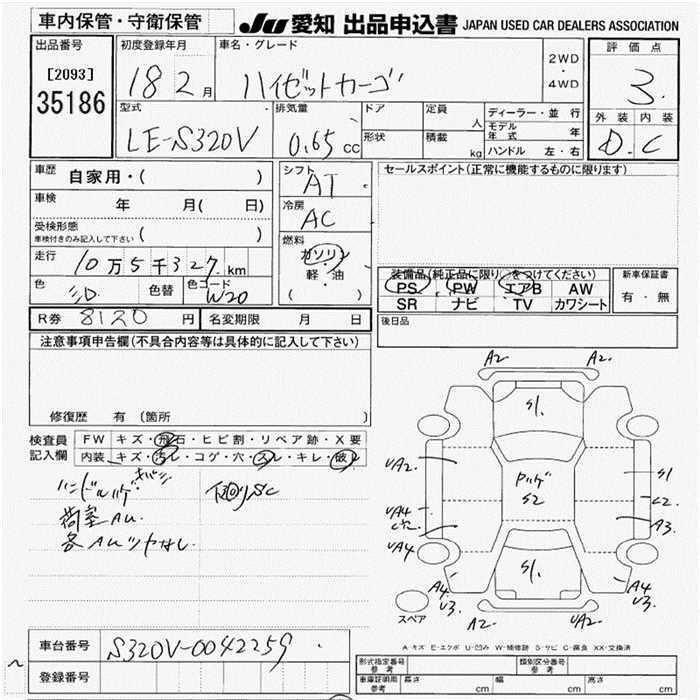 車内保管・守衛保管
JU 愛知 出品申込書 JAPAN USED CAR DEALERS ASSOCIATION
出品番号
[2093]
35186
初度登録年月
18 2月
車名・グレード
ハイゼットカーゴ
2WD
・
4WD
評価点
3.
外装 内装
D . C
型式
LE-S320V
排気量
0.65 cc
ドア
形状
定員 人
積載 kg
ディーラー・並行
モデル年式 年
ハンドル 左・右
車歴 自家用・( )
車検 年 月( 日)
受検形態
車検付きのみ記入して下さい ( )
走行 10万5千327km
色 色替 色コード W20
R券 8120 円 名変期限 月 日
シフト AT
冷房 AC
燃料
ガソリン
・
軽・油
( )
セールスポイント(正常に機能するものに限ります)
装備品(純正品に限り○をつけてください)
PS PW エアB AW
SR ナビ TV カワシート
新車保証書
有・無
後日品
注意事項申告欄(不具合内容等は具体的に記入して下さい)
修復歴 有 (箇所 )
検査員記入欄
FW キズ・飛石・ヒビ割・リペア跡・X要
内装 キズ・汚レ・コゲ・穴・スレ・キレ・破レ
ハンドルハゲ キバミ
下回りSC
荷室AU.
各AUツヤなし
A2 A2.
S1.
UA2
ハゲ
S2
S1
C2
UA4
A3
UA4
S1.
A4
U3.
A4
U3.
A2
UA2
スペア
A-キズ E-エクボ U-凹み W-補修跡 S-サビ C-腐食 XX-交換済
車台番号 S320V-0042259
登録番号
形式指定番号 参考
類別区分番号 参考
車庫証明用 参考 長さ cm 幅 cm 高さ cm